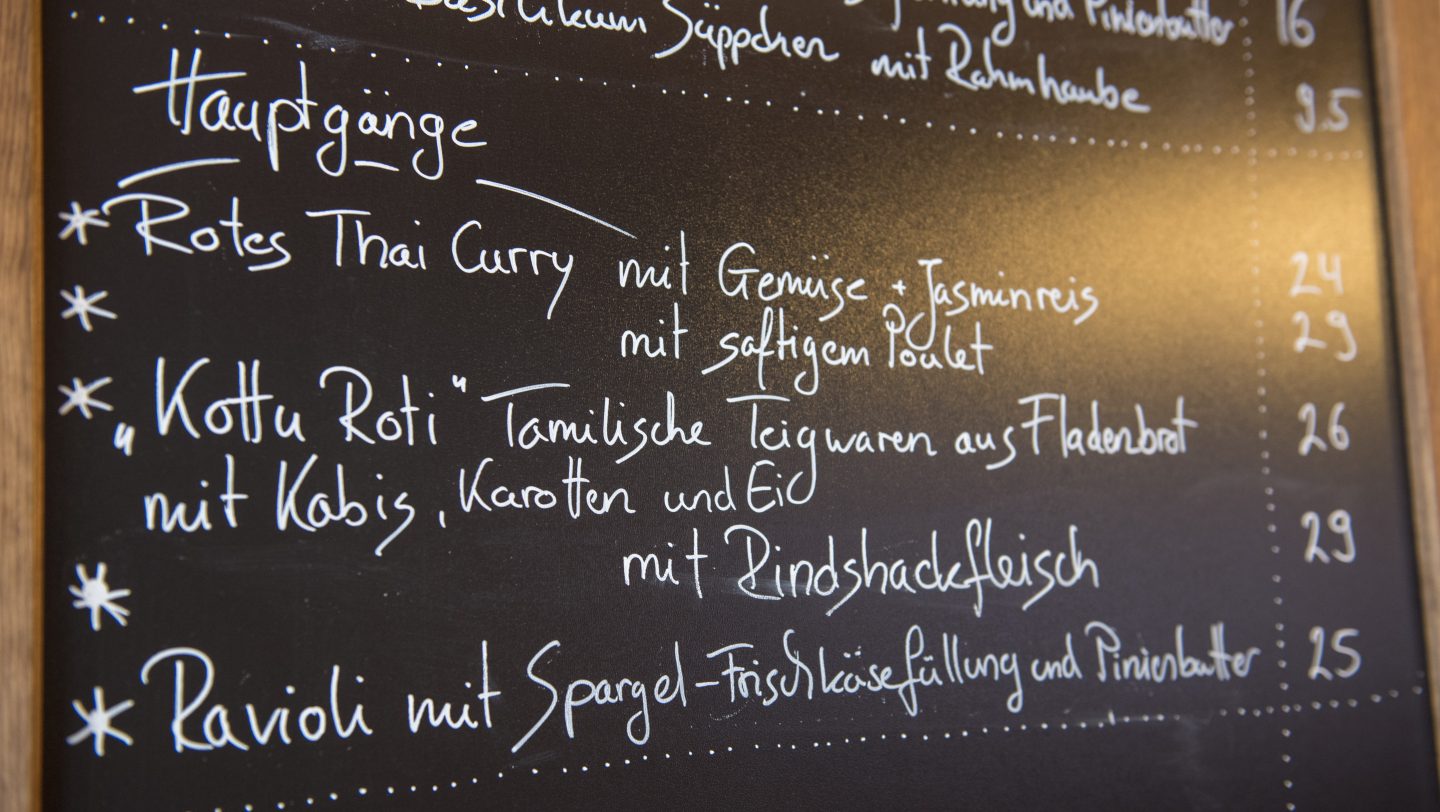 und Pinienbutter 16
Süppchen mit Rahmhaube 9.5
Hauptgänge
* Rotes Thai Curry mit Gemüse + Jasminreis 24
* mit saftigem Poulet 29
* „Kottu Roti" Tamilische Teigwaren aus Fladenbrot 26
mit Kabis, Karotten und Ei
* mit Rindshackfleisch 29
* Ravioli mit Spargel-Frischkäsefüllung und Pinienbutter 25